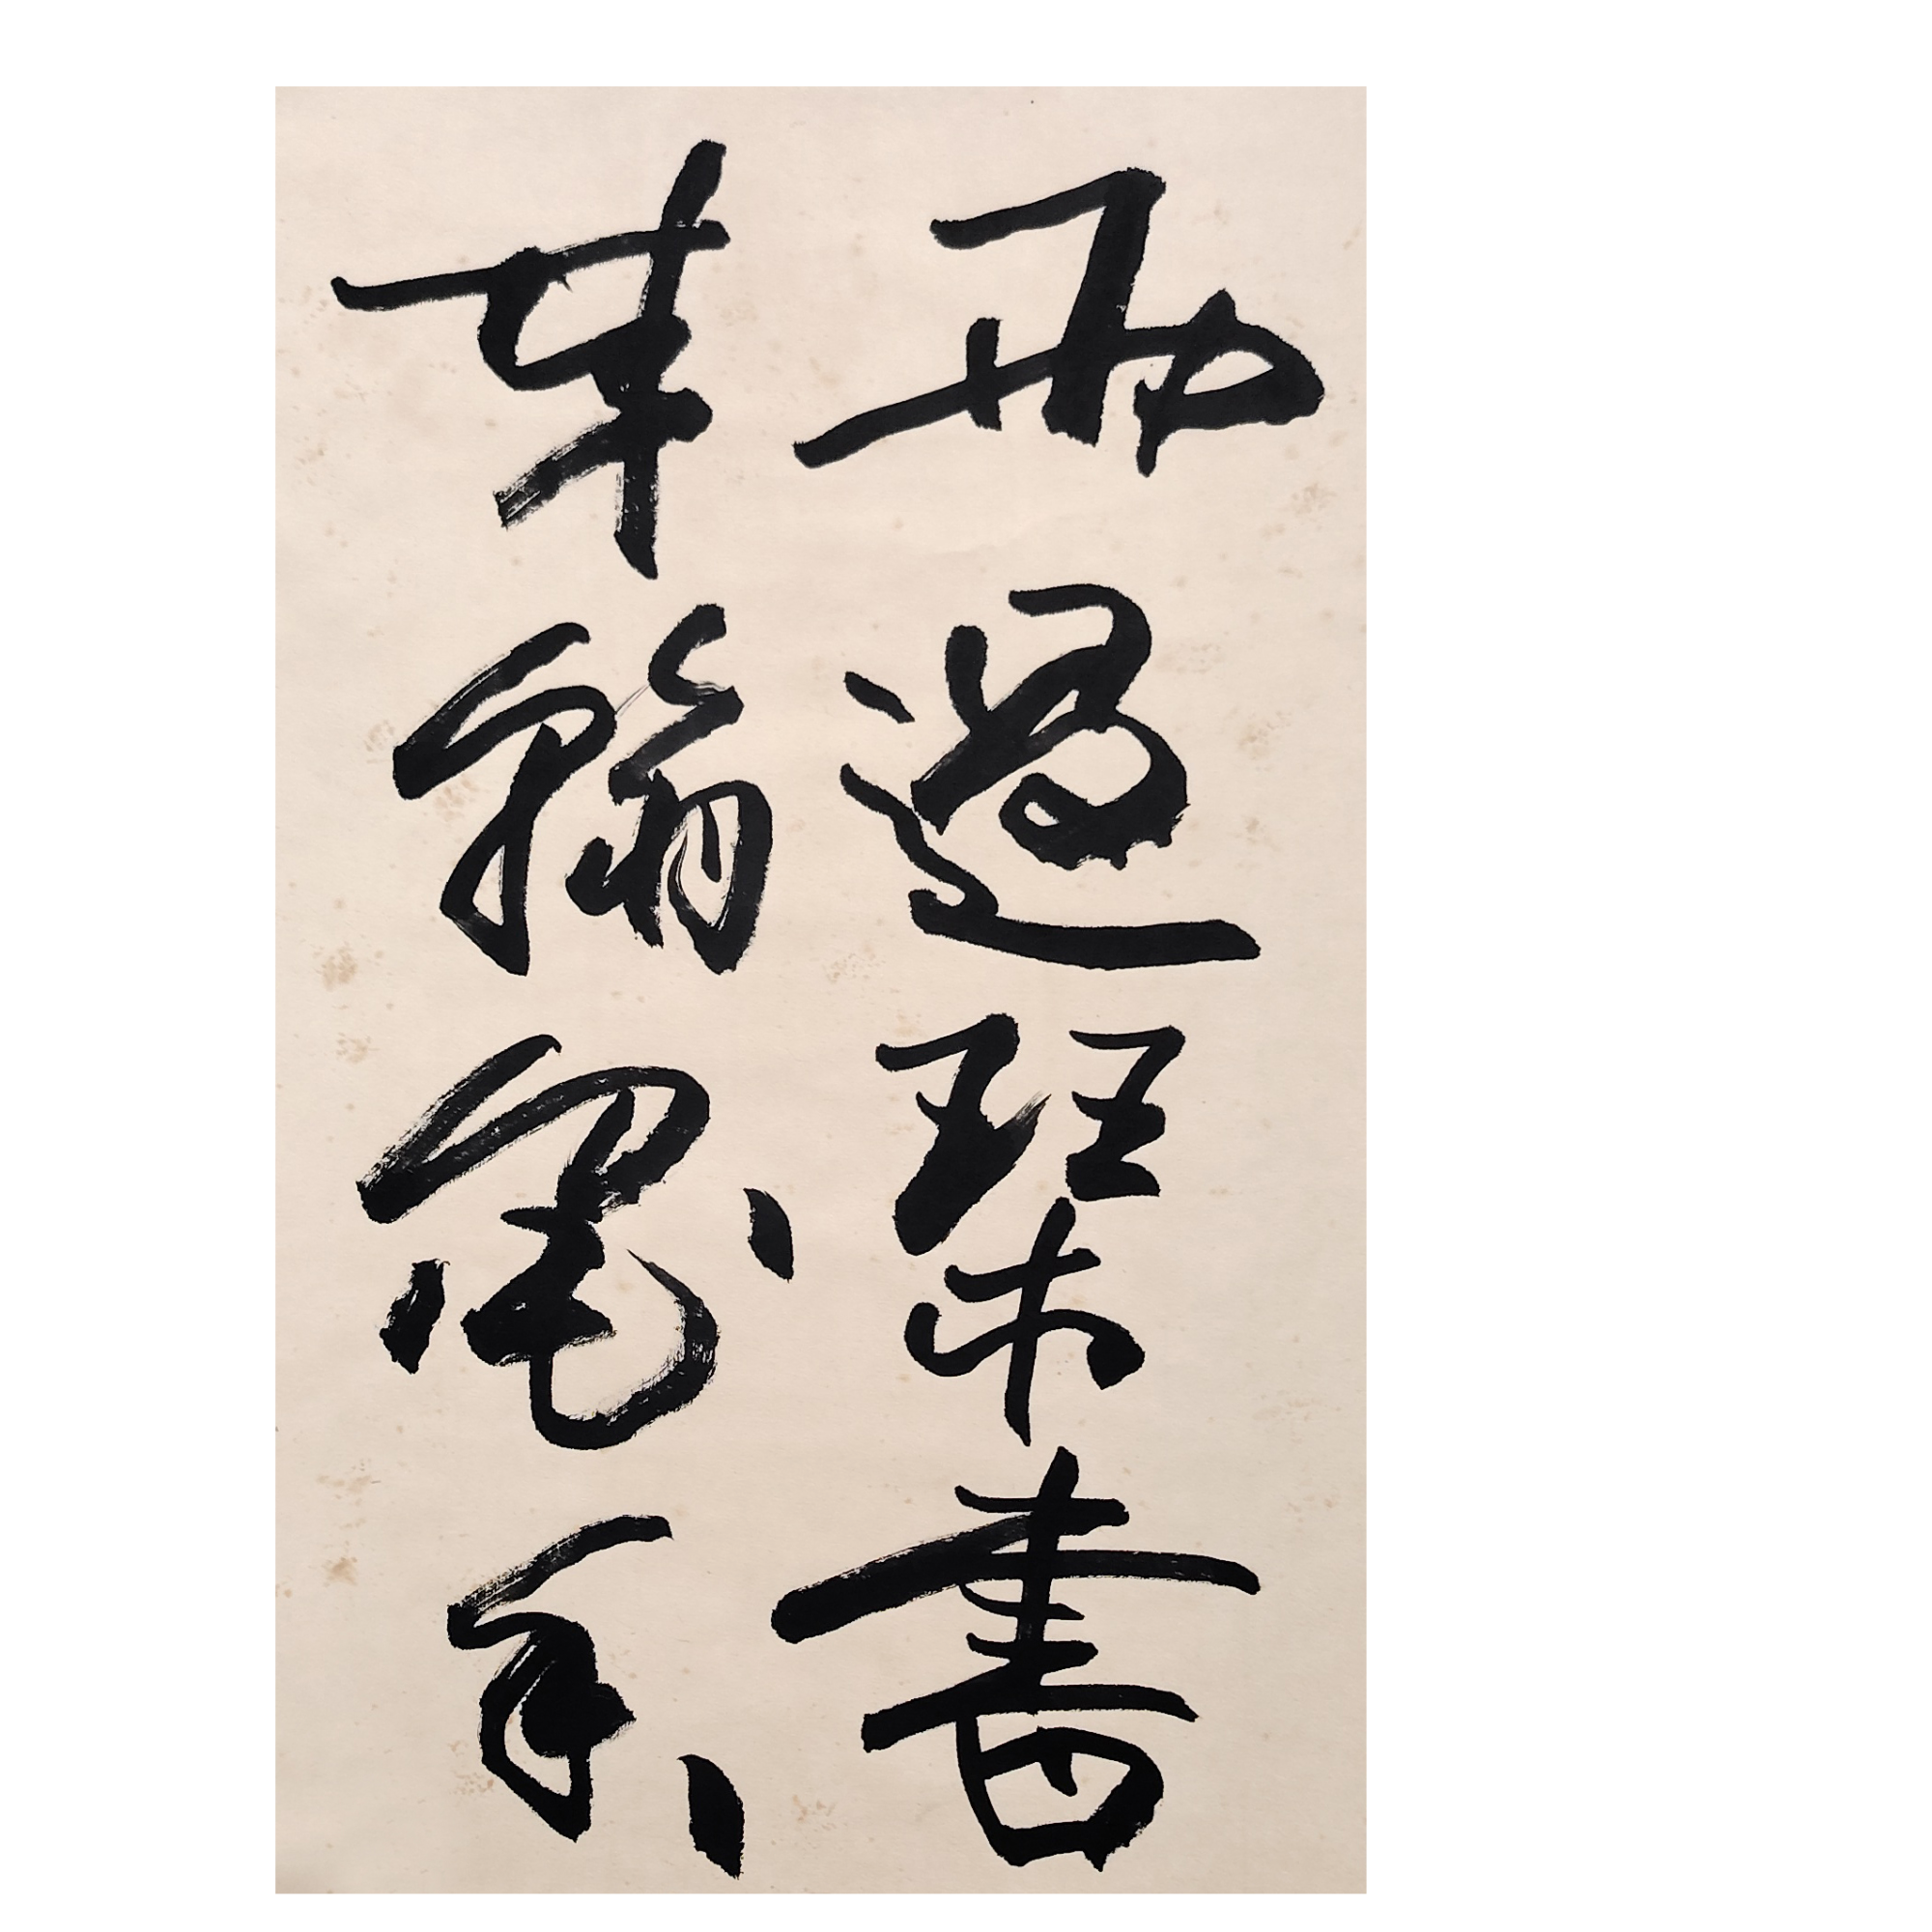 雨過琴書
來翰墨香